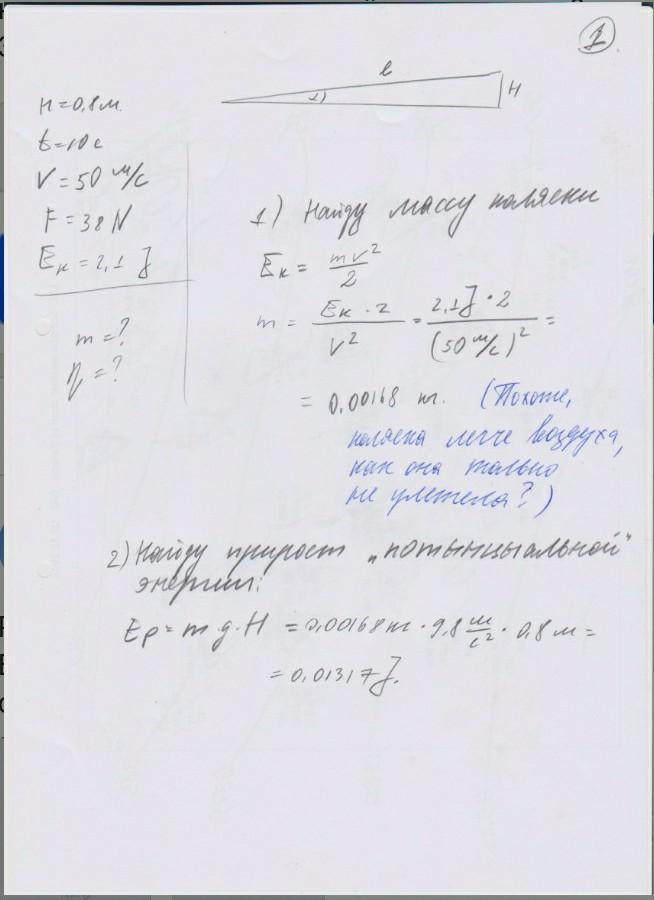 1
l
1)
H
H = 0,8 м.
t = 10 с
V = 50 м/с
F = 38 N
Eк = 2,1 J
m = ?
η = ?
1) Найду массу коляски
Eк = mv²/2
m = Eк · 2 / V² = 2,1 J · 2 / (50 м/с)² =
= 0,00168 кг. (Похоже,
коляска легче воздуха,
как она только
не улетела?)
2) Найду прирост „потынцыальной"
энергии:
Ep = m g · H = 0,00168 кг · 9,8 м/с² · 0,8 м =
= 0,01317 J.